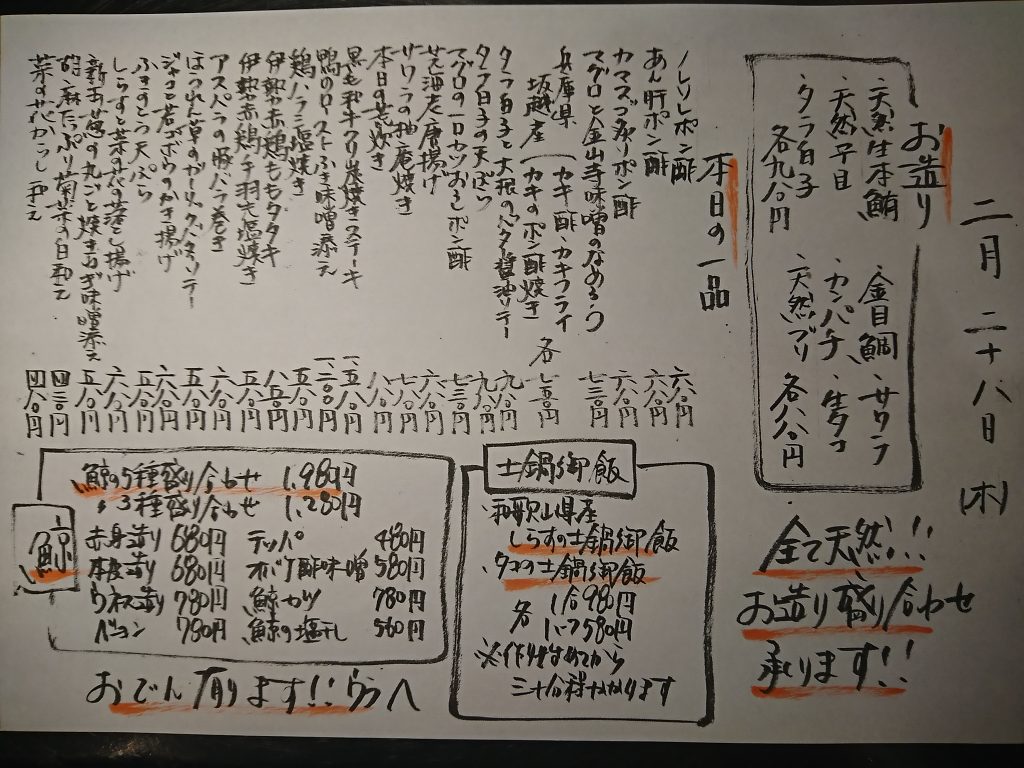 二月二十八日(木)
お造り
・天然生本鮪
・天然平目
・タラ白子
各九八〇円
・金目鯛・サワラ
・カンパチ・生タコ
・天然ブリ
各八八〇円
全て天然!!
お造り盛り合わせ
承ります!!
本日の一品
ノレソレポン酢 六八〇円
あん肝ポン酢 六八〇円
カマスゴ炙りポン酢 六八〇円
マグロと金山寺味噌のなめろう 七三〇円
兵庫県
坂越産(カキ酢・カキフライ
カキのポン酢焼き 各 七三〇円
タラ白子と大根のバター醤油ソテー 九八〇円
タラ白子の天ぷら 九八〇円
マグロの一口カツおろしポン酢 七三〇円
甘え海老唐揚げ 六八〇円
サワラの柚庵焼き 七八〇円
本日の荒炊き 八八〇円
黒毛和牛クリ炭焼きステーキ 一、五八〇円
鴨のローストふき味噌添え 一、二〇〇円
鶏ハラミ塩焼き 五八〇円
伊勢赤鶏ももタタキ 八五〇円
伊勢赤鶏手羽先塩焼き 五八〇円
アスパラの豚バラ巻き 六八〇円
ほうれん草のガーリックバターソテー 五八〇円
ジャコと若ゴボウのかき揚げ 六八〇円
ふきのとう天ぷら 五八〇円
しらすと菜の花の落とし揚げ 六八〇円
新玉ねぎの丸ごと焼きネギ味噌添え 五八〇円
胡麻たっぷり菊菜の白和え 四三〇円
菜の花からし和え 四八〇円
土鍋御飯
・和歌山県産
しらすの土鍋御飯
・タコの土鍋御飯
各 1合980円
1.5つ1580円
※作り始めてから
三十分程かかります
鯨
鯨の5種盛り合わせ 1,980円
〃 3種盛り合わせ 1,280円
赤身造り 680円 テッパ 480円
本皮造り 680円 オバケ酢味噌 580円
ウネス造り 780円 鯨カツ 780円
ベーコン 780円 鯨の塩干し 560円
おでん有ります!!ウラへ